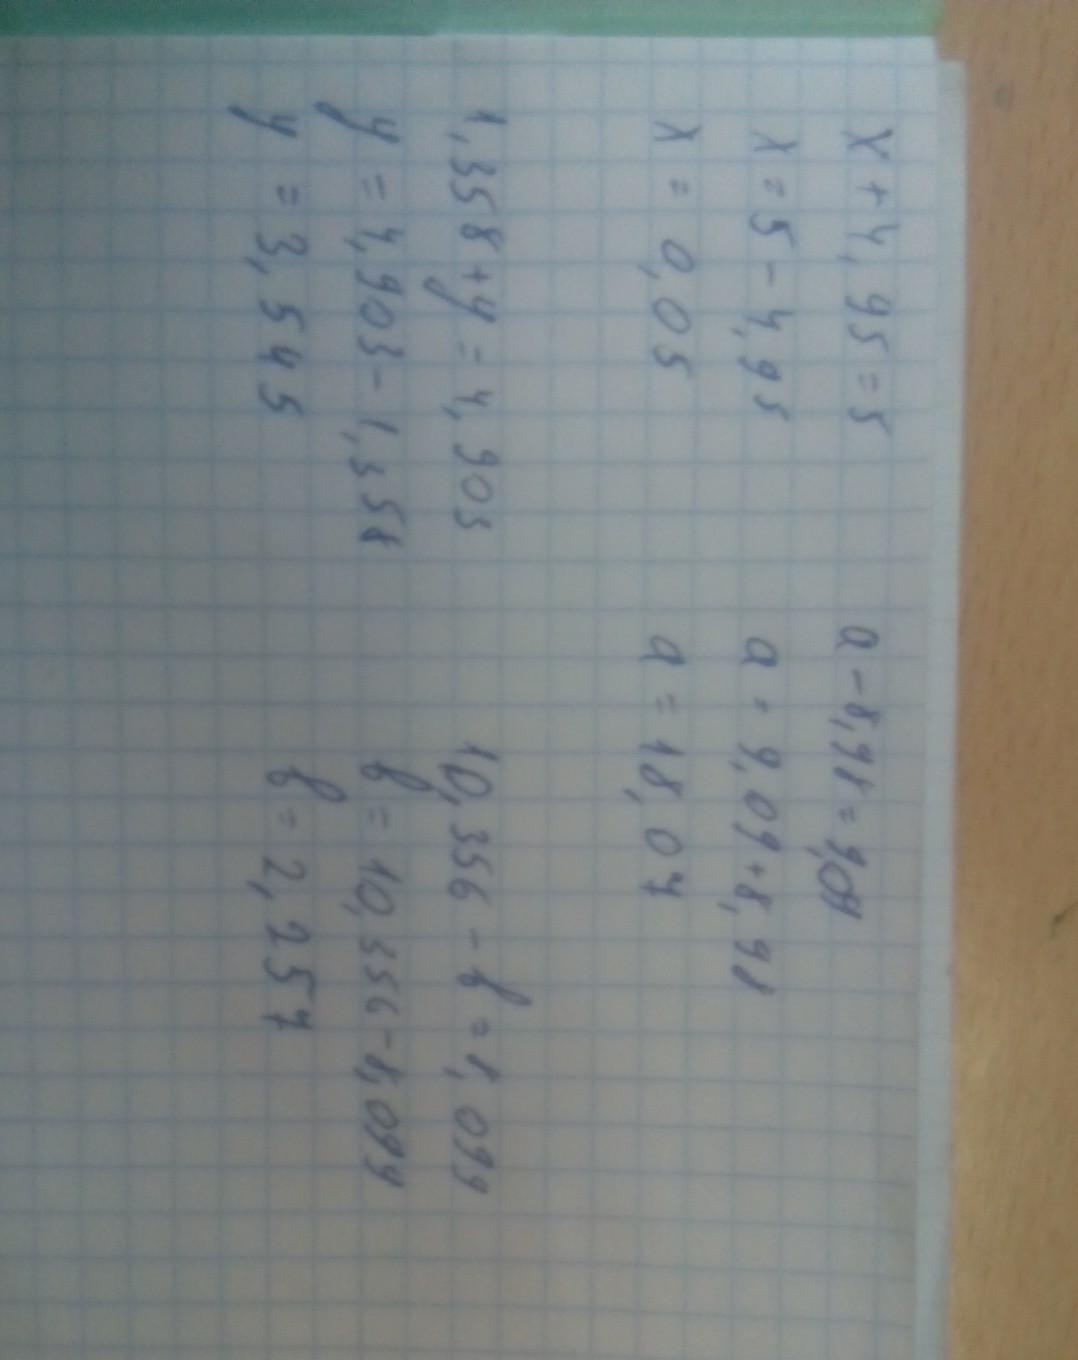 x + 4,95 = 5
x = 5 - 4,95
x = 0,05
a - 8,98 = 9,09
a = 9,09 + 8,98
a = 18,07
1,358 + y = 4,903
y = 4,903 - 1,358
y = 3,545
10,356 - в = 8,099
в = 10,356 - 8,099
в = 2,257